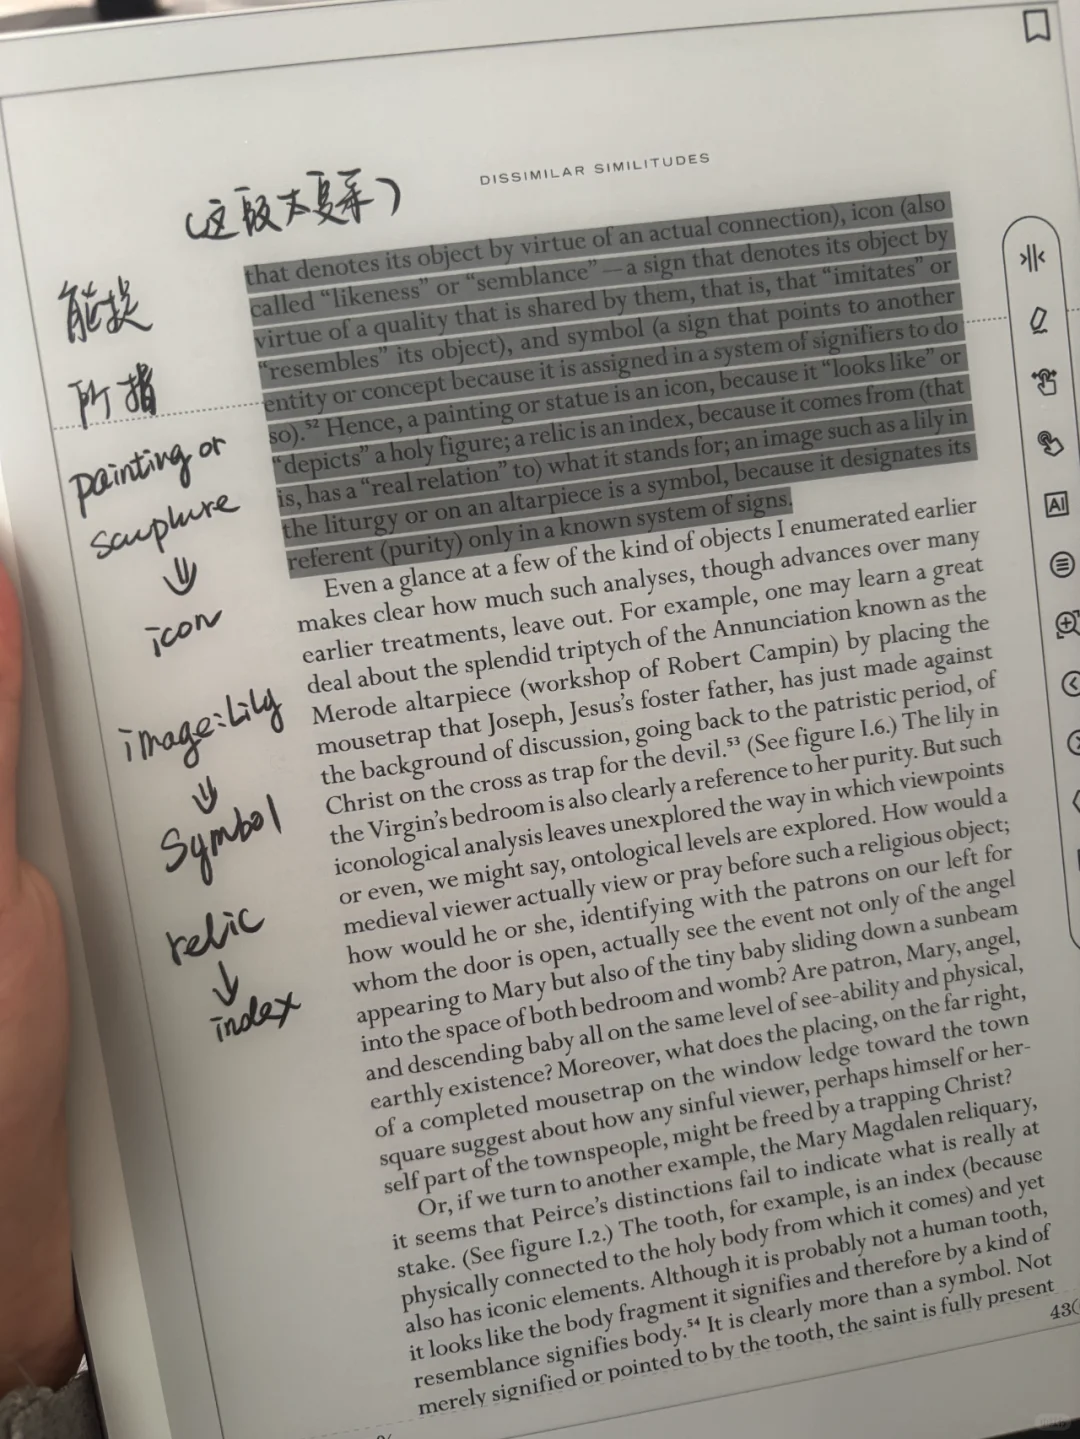 DISSIMILAR SIMILITUDES
(这段太复杂)
能指
所指
painting or
scuplture
⇓
icon
image:Lily
⇓
Symbol
relic
↓
index
that denotes its object by virtue of an actual connection), icon (also
called “likeness” or “semblance”—a sign that denotes its object by
virtue of a quality that is shared by them, that is, that “imitates” or
“resembles” its object), and symbol (a sign that points to another
entity or concept because it is assigned in a system of signifiers to do
so).52 Hence, a painting or statue is an icon, because it “looks like” or
“depicts” a holy figure; a relic is an index, because it comes from (that
is, has a “real relation” to) what it stands for; an image such as a lily in
the liturgy or on an altarpiece is a symbol, because it designates its
referent (purity) only in a known system of signs.
Even a glance at a few of the kind of objects I enumerated earlier
makes clear how much such analyses, though advances over many
earlier treatments, leave out. For example, one may learn a great
deal about the splendid triptych of the Annunciation known as the
Merode altarpiece (workshop of Robert Campin) by placing the
mousetrap that Joseph, Jesus’s foster father, has just made against
the background of discussion, going back to the patristic period, of
Christ on the cross as trap for the devil.53 (See figure I.6.) The lily in
the Virgin’s bedroom is also clearly a reference to her purity. But such
iconological analysis leaves unexplored the way in which viewpoints
or even, we might say, ontological levels are explored. How would a
medieval viewer actually view or pray before such a religious object;
how would he or she, identifying with the patrons on our left for
whom the door is open, actually see the event not only of the angel
appearing to Mary but also of the tiny baby sliding down a sunbeam
into the space of both bedroom and womb? Are patron, Mary, angel,
and descending baby all on the same level of see-ability and physical,
earthly existence? Moreover, what does the placing, on the far right,
of a completed mousetrap on the window ledge toward the town
square suggest about how any sinful viewer, perhaps himself or her-
self part of the townspeople, might be freed by a trapping Christ?
Or, if we turn to another example, the Mary Magdalen reliquary,
it seems that Peirce’s distinctions fail to indicate what is really at
stake. (See figure I.2.) The tooth, for example, is an index (because
physically connected to the holy body from which it comes) and yet
also has iconic elements. Although it is probably not a human tooth,
it looks like the body fragment it signifies and therefore by a kind of
resemblance signifies body.54 It is clearly more than a symbol. Not
merely signified or pointed to by the tooth, the saint is fully present
AI